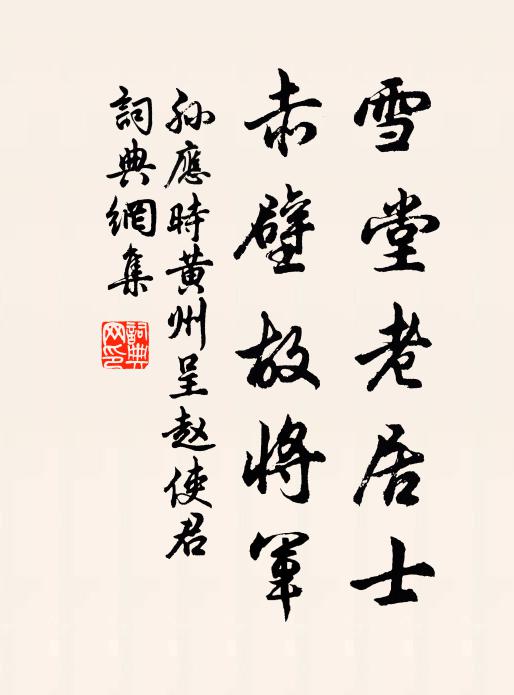 雪堂老居士
赤壁故將軍
孫應時黃州呈趙使君
詞典網集
詞典網印